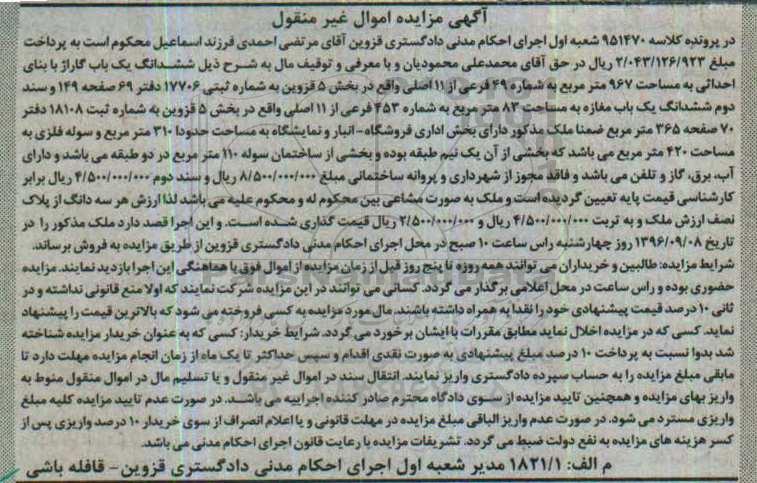 آگهی مزایده اموال غیر منقول
در پرونده کلاسه ۹۵۱۴۷۰ شعبه اول اجرای احکام مدنی دادگستری قزوین آقای مرتضی احمدی فرزند اسماعیل محکوم است به پرداخت
مبلغ ۲/۰۴۳/۱۲۶/۹۲۳ ریال در حق آقای محمدعلی محمودیان و با معرفی و توقیف مال به شرح ذیل ششدانگ یک باب گاراژ با بنای
احداثی به مساحت ۹۶۷ متر مربع به شماره ۴۹ فرعی از ۱۱ اصلی واقع در بخش ۵ قزوین به شماره ثبتی ۱۷۷۰۶ دفتر ۶۹ صفحه ۱۴۹ و سند
دوم ششدانگ یک باب مغازه به مساحت ۸۳ متر مربع به شماره ۴۵۳ فرعی از ۱۱ اصلی واقع در بخش ۵ قزوین به شماره ثبت ۱۸۱۰۸ دفتر
۷۰ صفحه ۳۶۵ متر مربع ضمنا ملک مذکور دارای بخش اداری فروشگاه- انبار و نمایشگاه به مساحت حدودا ۳۱۰ متر مربع و سوله فلزی به
مساحت ۴۲۰ متر مربع می باشد که بخشی از آن یک نیم طبقه بوده و بخشی از ساختمان سوله ۱۱۰ متر مربع در دو طبقه می باشد و دارای
آب، برق، گاز و تلفن می باشد و فاقد مجوز از شهرداری و پروانه ساختمانی مبلغ ۸/۵۰۰/۰۰۰/۰۰۰ ریال و سند دوم ۴/۵۰۰/۰۰۰/۰۰۰ ریال برابر
کارشناسی قیمت پایه تعیین گردیده است و ملک به صورت مشاعی بین محکوم له و محکوم علیه می باشد لذا ارزش هر سه دانگ از پلاک
نصف ارزش ملک و به تربت ۴/۵۰۰/۰۰۰/۰۰۰ ریال و ۲/۵۰۰/۰۰۰/۰۰۰ ریال قیمت گذاری شده است. و این اجرا قصد دارد ملک مذکور را در
تاریخ ۱۳۹۶/۰۹/۰۸ روز چهارشنبه راس ساعت ۱۰ صبح در محل اجرای احکام مدنی دادگستری قزوین از طریق مزایده به فروش برساند.
شرایط مزایده: طالبین و خریداران می توانند همه روزه تا پنج روز قبل از زمان مزایده از اموال فوق با هماهنگی این اجرا بازدید نمایند. مزایده
حضوری بوده و راس ساعت در محل اعلامی برگذار می گردد. کسانی می توانند در این مزایده شرکت نمایند که اولا منع قانونی نداشته و در
ثانی ۱۰ درصد قیمت پیشنهادی خود را نقدا به همراه داشته باشند. مال مورد مزایده به کسی فروخته می شود که بالاترین قیمت را پیشنهاد
نماید. کسی که در مزایده اخلال نماید مطابق مقررات با ایشان برخورد می گردد. شرایط خریدار: کسی که به عنوان خریدار مزایده شناخته
شد بدوا نسبت به پرداخت ۱۰ درصد مبلغ پیشنهادی به صورت نقدی اقدام و سپس حداکثر تا یک ماه از زمان انجام مزایده مهلت دارد تا
مابقی مبلغ مزایده را به حساب سپرده دادگستری واریز نمایند. انتقال سند در اموال غیر منقول و یا تسلیم مال در اموال منقول منوط به
واریز بهای مزایده و همچنین تایید مزایده از سوی دادگاه محترم صادر کننده اجراییه می باشد. در صورت عدم تایید مزایده کلیه مبلغ
واریزی مسترد می شود. در صورت عدم واریز الباقی مبلغ مزایده در مهلت قانونی و یا اعلام انصراف از سوی خریدار ۱۰ درصد واریزی پس از
کسر هزینه های مزایده به نفع دولت ضبط می گردد. تشریفات مزایده با رعایت قانون اجرای احکام مدنی می باشد.
م الف: ۱۸۲۱/۱ مدیر شعبه اول اجرای احکام مدنی دادگستری قزوین- قافله باشی